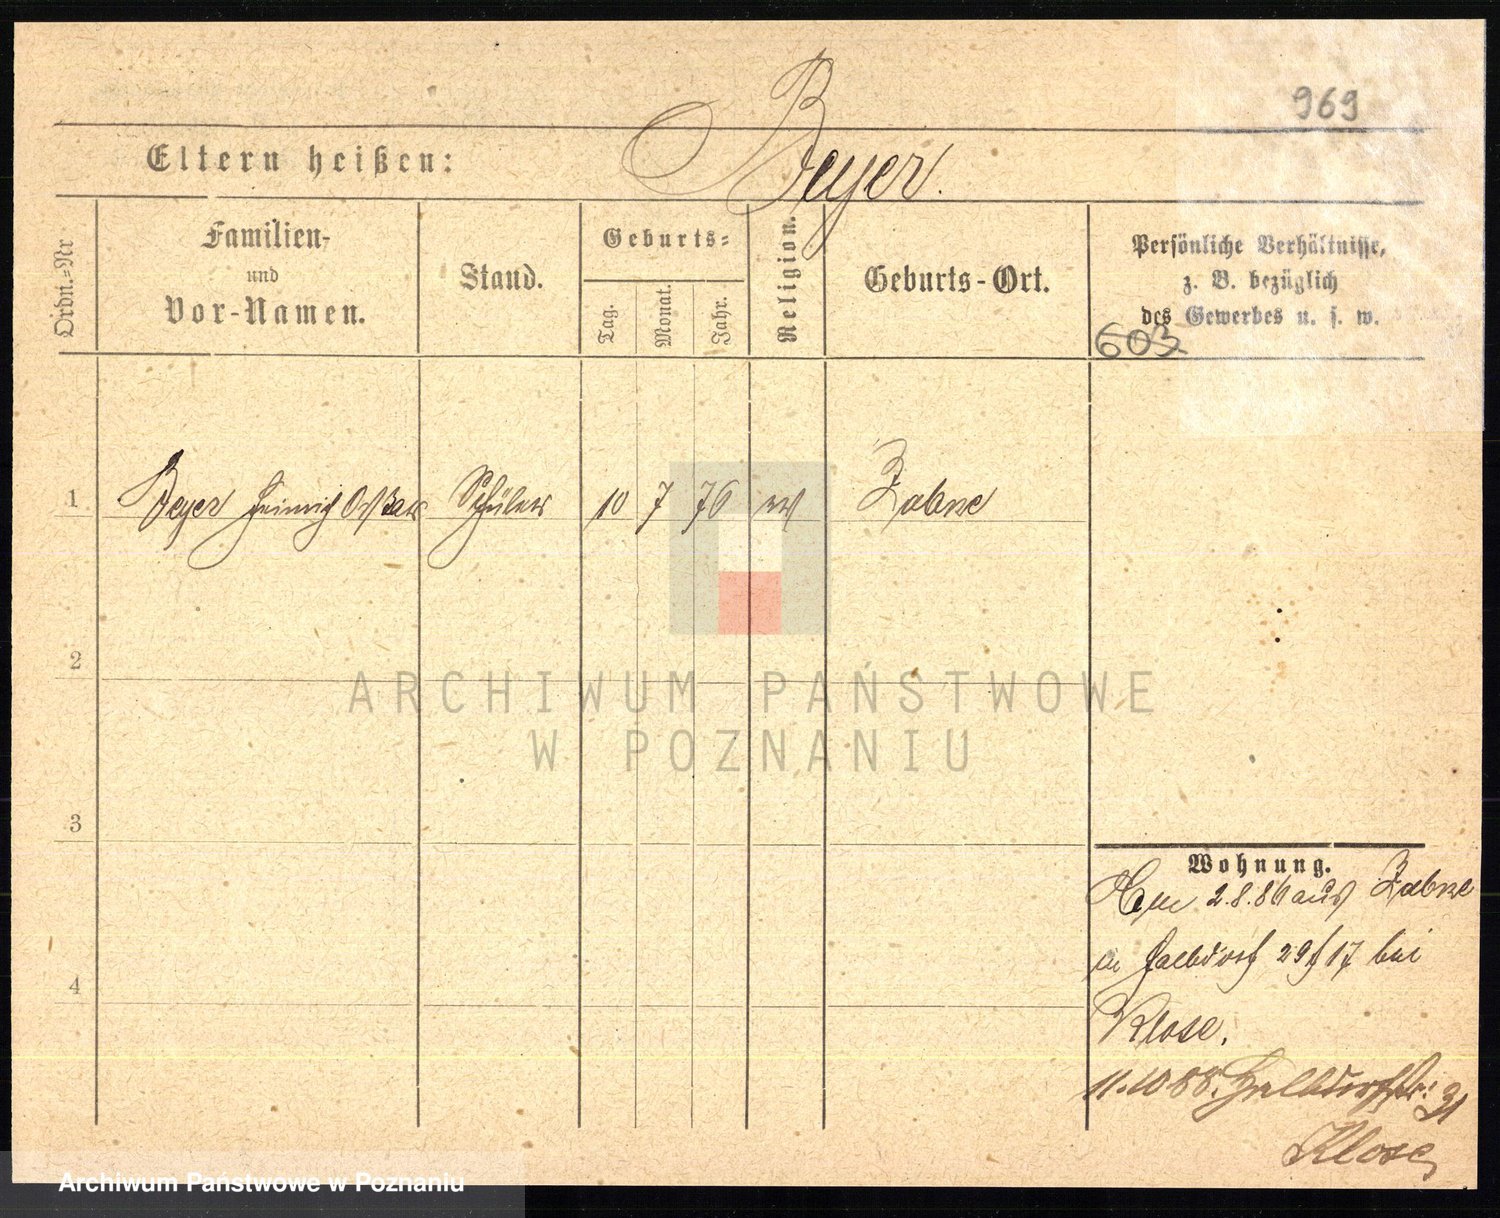 969
Eltern heißen: Beyer.
Ordn.-Nr
Familien-
und
Vor-Namen.
Stand.
Geburts-
Tag.
Monat.
Jahr.
Religion.
Geburts-Ort.
Persönliche Verhältnisse,
z. B. bezüglich
des Gewerbes u. s. w.
603
1 Beyer Heinrich Oskar Schüler 10 7 76 ev Zabne
2
3
4
ARCHIWUM PAŃSTWOWE
W POZNANIU
Wohnung.
2.8.86 aus Zabne
in Halbdorf 29 17 bei
Klose.
11.10.88. Halbdorfstr: 31
Klose
Archiwum Państwowe w Poznaniu